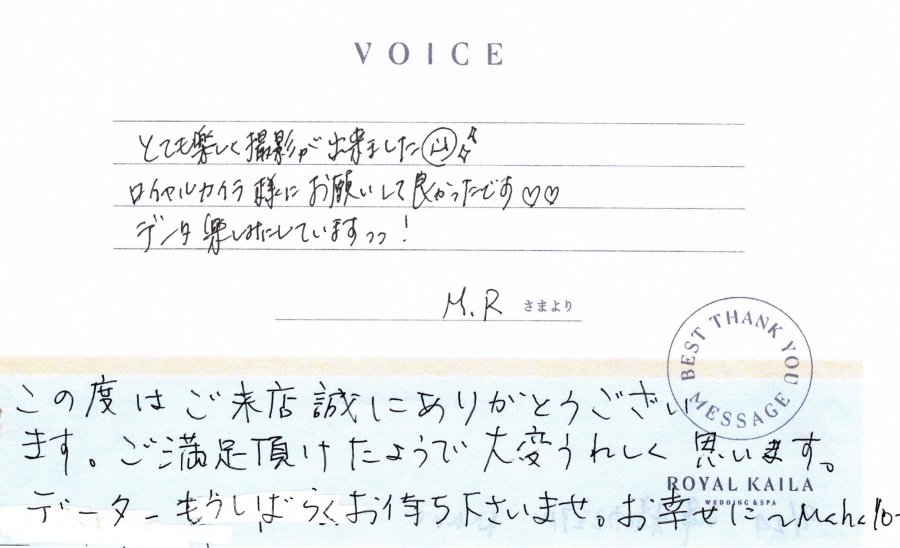 VOICE
とても楽しく撮影が出来ました
ロイヤルカイラ様にお願いして良かったです♡♡
データ楽しみにしていますっっ!
M.R さまより
BEST THANK YOU MESSAGE
この度はご来店誠にありがとうござい
ます。ご満足頂けたようで大変うれしく思います。
ROYAL KAILA
WEDDING & SPA
データーもうしばらくお待ち下さいませ。お幸せに~Mahalo~